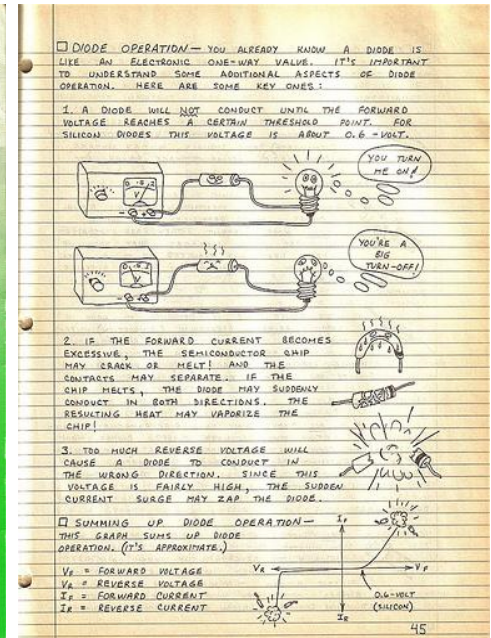 □ DIODE OPERATION — YOU ALREADY KNOW A DIODE IS
LIKE AN ELECTRONIC ONE-WAY VALVE. IT'S IMPORTANT
TO UNDERSTAND SOME ADDITIONAL ASPECTS OF DIODE
OPERATION. HERE ARE SOME KEY ONES:
1. A DIODE WILL NOT CONDUCT UNTIL THE FORWARD
VOLTAGE REACHES A CERTAIN THRESHOLD POINT. FOR
SILICON DIODES THIS VOLTAGE IS ABOUT 0.6-VOLT.
YOU TURN
ME ON!
V
YOU'RE A
BIG
TURN-OFF!
V
2. IF THE FORWARD CURRENT BECOMES
EXCESSIVE, THE SEMICONDUCTOR CHIP
MAY CRACK OR MELT! AND THE
CONTACTS MAY SEPARATE. IF THE
CHIP MELTS, THE DIODE MAY SUDDENLY
CONDUCT IN BOTH DIRECTIONS. THE
RESULTING HEAT MAY VAPORIZE THE
CHIP!
3. TOO MUCH REVERSE VOLTAGE WILL
CAUSE A DIODE TO CONDUCT IN
THE WRONG DIRECTION. SINCE THIS
VOLTAGE IS FAIRLY HIGH, THE SUDDEN
CURRENT SURGE MAY ZAP THE DIODE.
□ SUMMING UP DIODE OPERATION —
THIS GRAPH SUMS UP DIODE
OPERATION. (IT'S APPROXIMATE.)
VF = FORWARD VOLTAGE
VR = REVERSE VOLTAGE
IF = FORWARD CURRENT
IR = REVERSE CURRENT
IF
VR
VF
0.6-VOLT
(SILICON)
IR
45